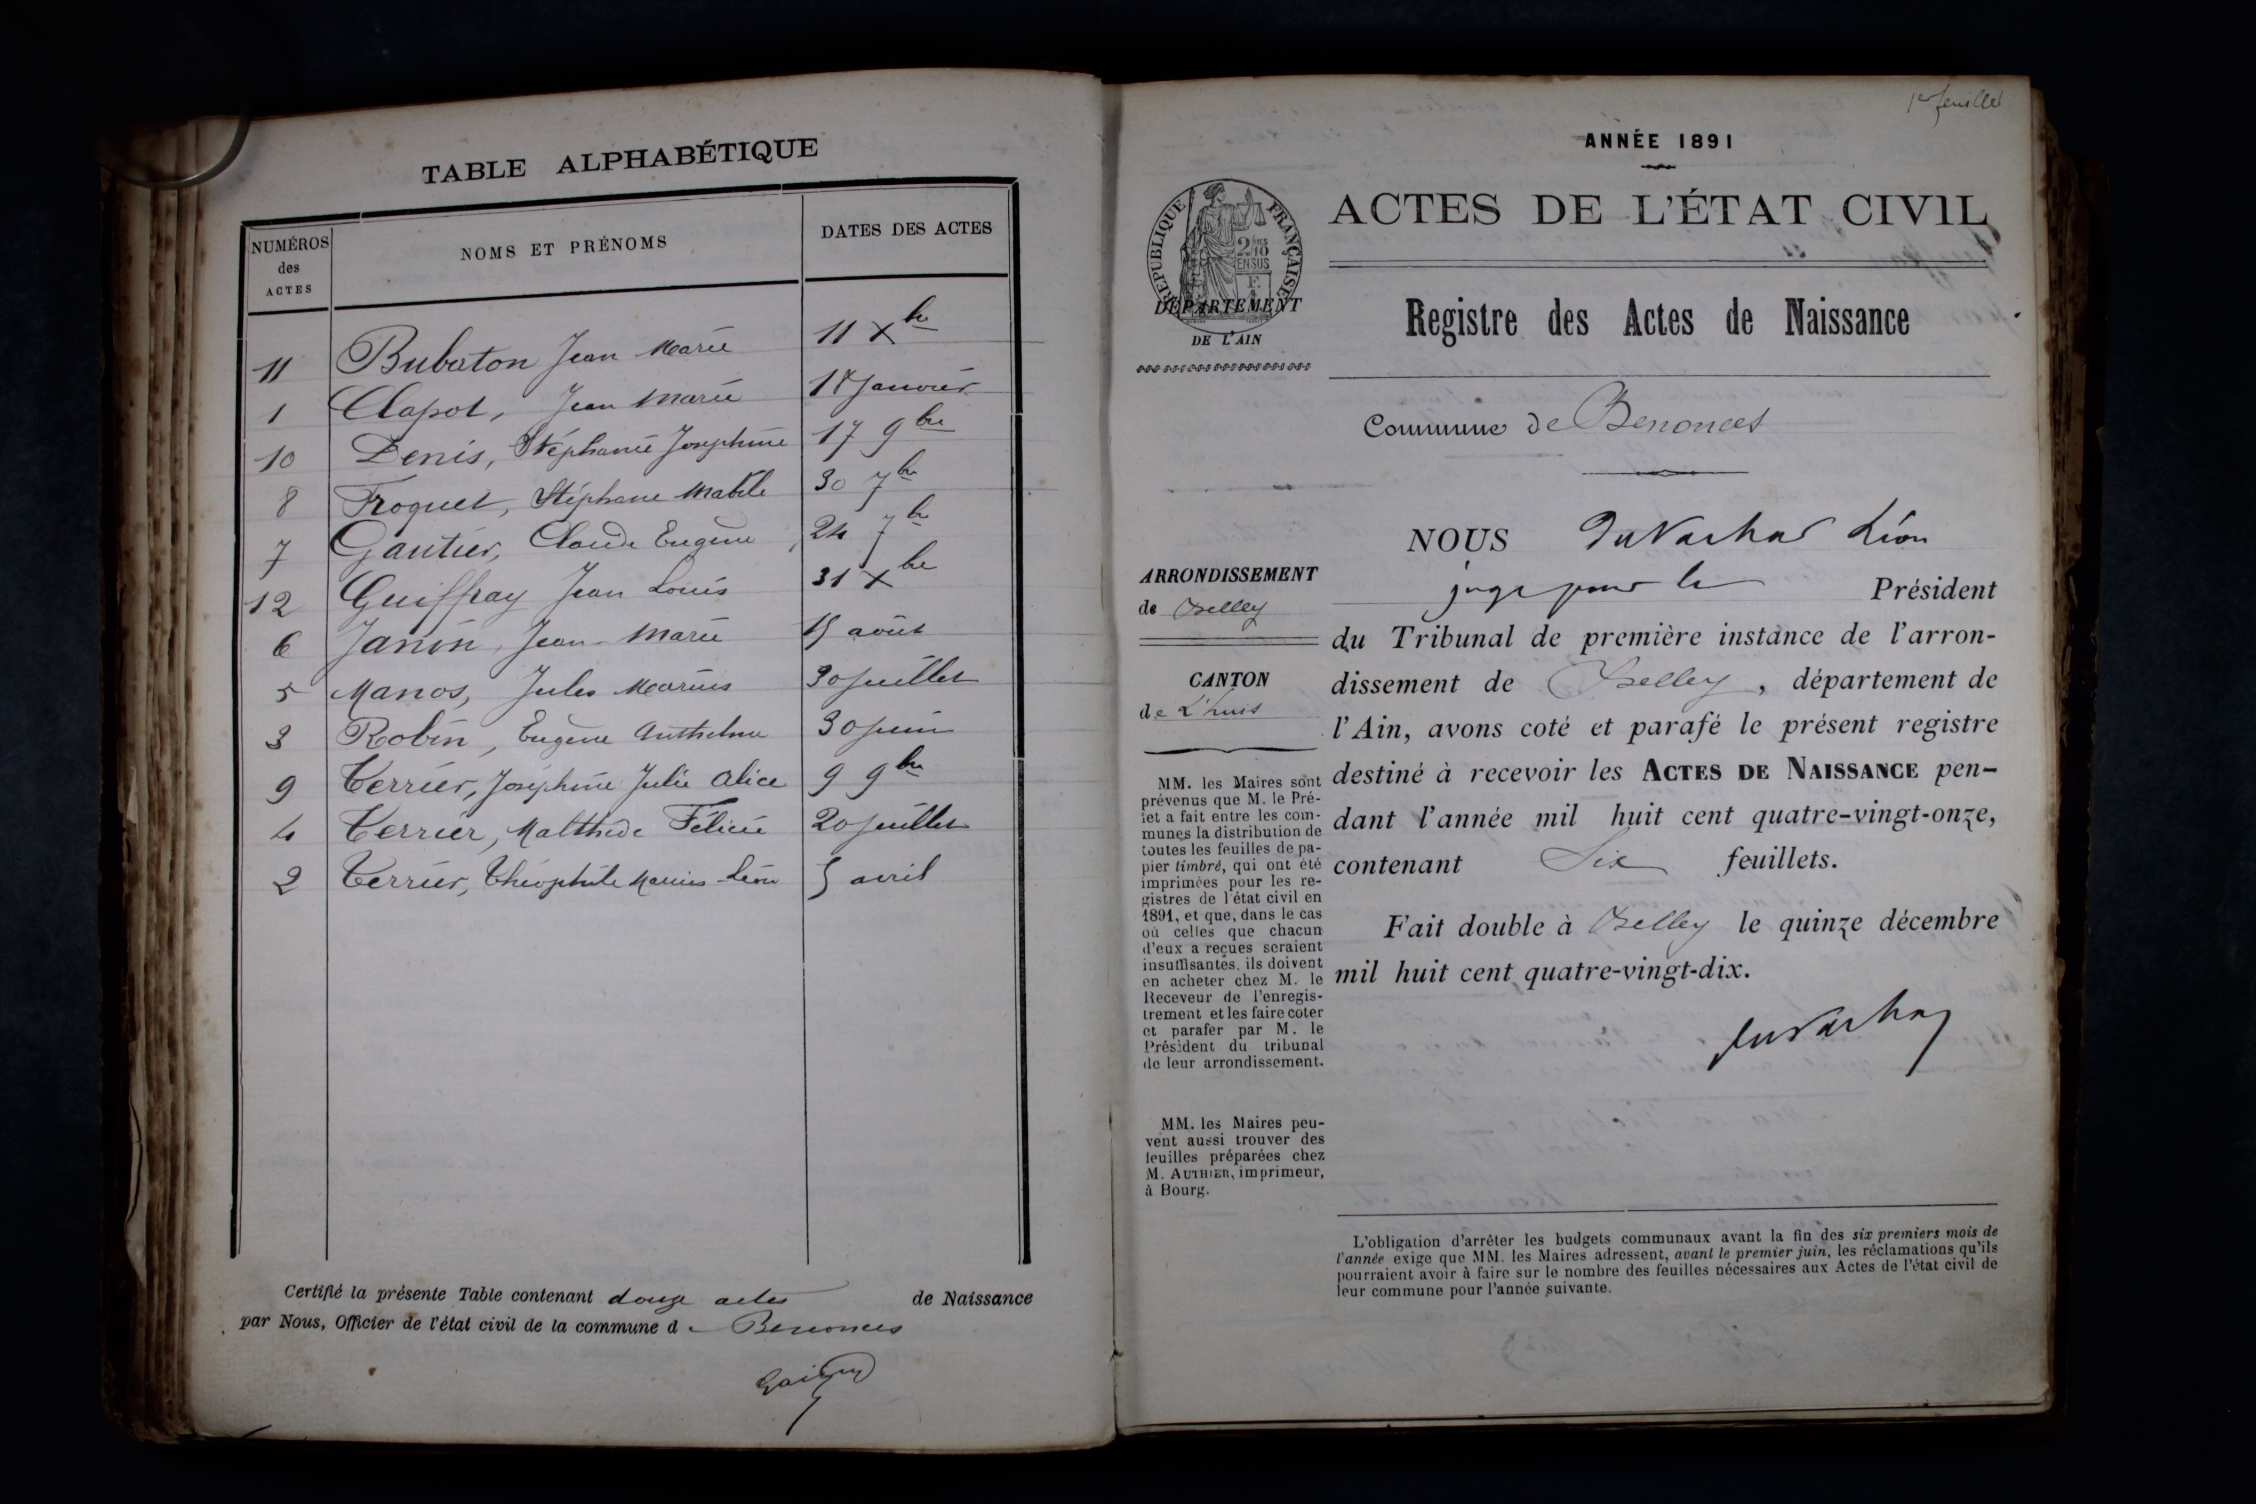 TABLE ALPHABÉTIQUE
NUMÉROS des ACTES | NOMS ET PRÉNOMS | DATES DES ACTES
11 Bubaton Jean Marie 11 Xbre
1 Clapot, Jean Marie 18 Janvier
10 Denis, Stéphanie Joséphine 17 9bre
8 Froquet, Stéphane 30 7bre
7 Gautier, Claude Eugène 24 7bre
12 Guiffray Jean Louis 31 Xbre
6 Janin, Jean-Marie 15 août
5 Manos, Jules Marius 30 juillet
3 Robin, Eugène Anthelme 30 juin
9 Terrier, Joséphine Julie Alice 9 9bre
4 Terrier, Malthide Félicie 20 juillet
2 Terrier, Théophile Marius Léon 5 avril
Certifié la présente Table contenant douze actes de Naissance
par Nous, Officier de l'état civil de la commune de Benonces
1er feuillet
ANNÉE 1891
ACTES DE L'ÉTAT CIVIL
RÉPUBLIQUE FRANÇAISE
2 10es
EN SUS
DÉPARTEMENT
DE L'AIN
Registre des Actes de Naissance
Commune de Benonces
ARRONDISSEMENT
de Belley
CANTON
de L'huis
MM. les Maires sont
prévenus que M. le Pré-
fet a fait entre les com-
munes la distribution de
toutes les feuilles de pa-
pier timbré, qui ont été
imprimées pour les re-
gistres de l'état civil en
1891, et que, dans le cas
où celles que chacun
d'eux a reçues seraient
insuffisantes, ils doivent
en acheter chez M. le
Receveur de l'enregis-
trement et les faire coter
et parafer par M. le
Président du tribunal
de leur arrondissement.
MM. les Maires peu-
vent aussi trouver des
feuilles préparées chez
M. AUTHIER, imprimeur,
à Bourg.
NOUS Duvachat Léon
juge pour le Président
du Tribunal de première instance de l'arron-
dissement de Belley, département de
l'Ain, avons coté et parafé le présent registre
destiné à recevoir les ACTES DE NAISSANCE pen-
dant l'année mil huit cent quatre-vingt-onze,
contenant Six feuillets.
Fait double à Belley le quinze décembre
mil huit cent quatre-vingt-dix.
Duvachat
L'obligation d'arrêter les budgets communaux avant la fin des six premiers mois de
l'année exige que MM. les Maires adressent, avant le premier juin, les réclamations qu'ils
pourraient avoir à faire sur le nombre des feuilles nécessaires aux Actes de l'état civil de
leur commune pour l'année suivante.